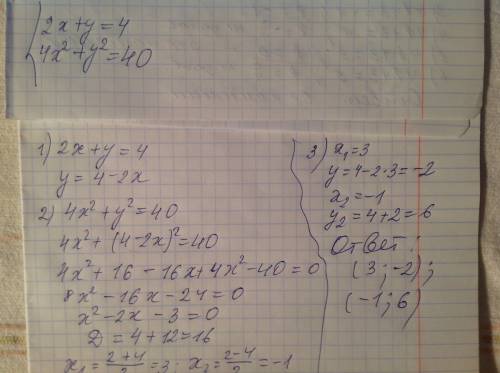 {2x+y=4
4x²+y²=40
1) 2x+y=4
y=4-2x
2) 4x²+y²=40
4x²+(4-2x)²=40
4x²+16-16x+4x²-40=0
8x²-16x-24=0
x²-2x-3=0
D=4+12=16
x₁=(2+4)/2=3; x₂=(2-4)/2=-1
3) x₁=3
y=4-2·3=-2
x₂=-1
y₂=4+2=6
Ответ:
(3;-2);
(-1;6)